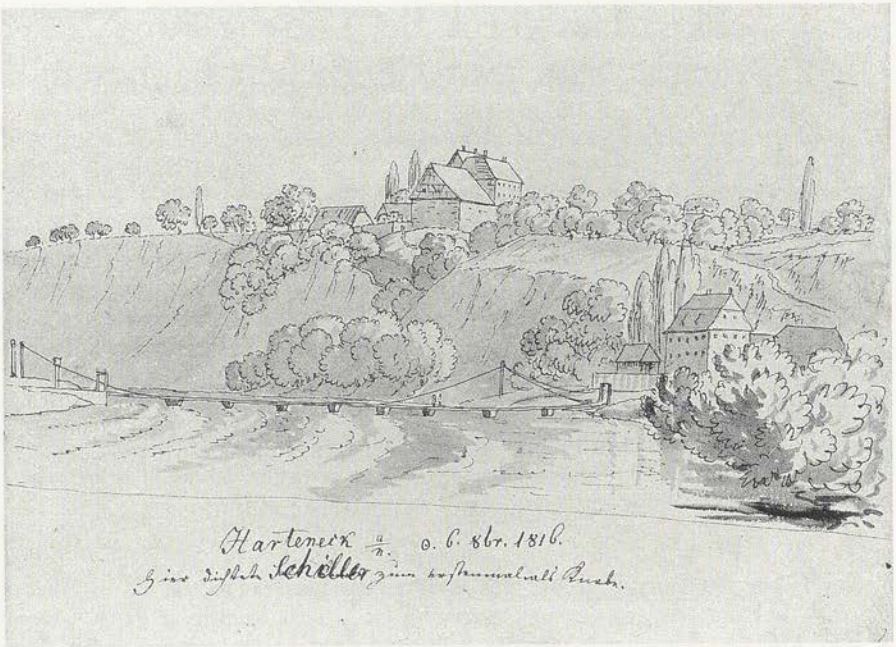 Harteneck a/n. d. 6. 8br. 1816.
Hier dichtete Schiller zum erstenmal als Knabe.